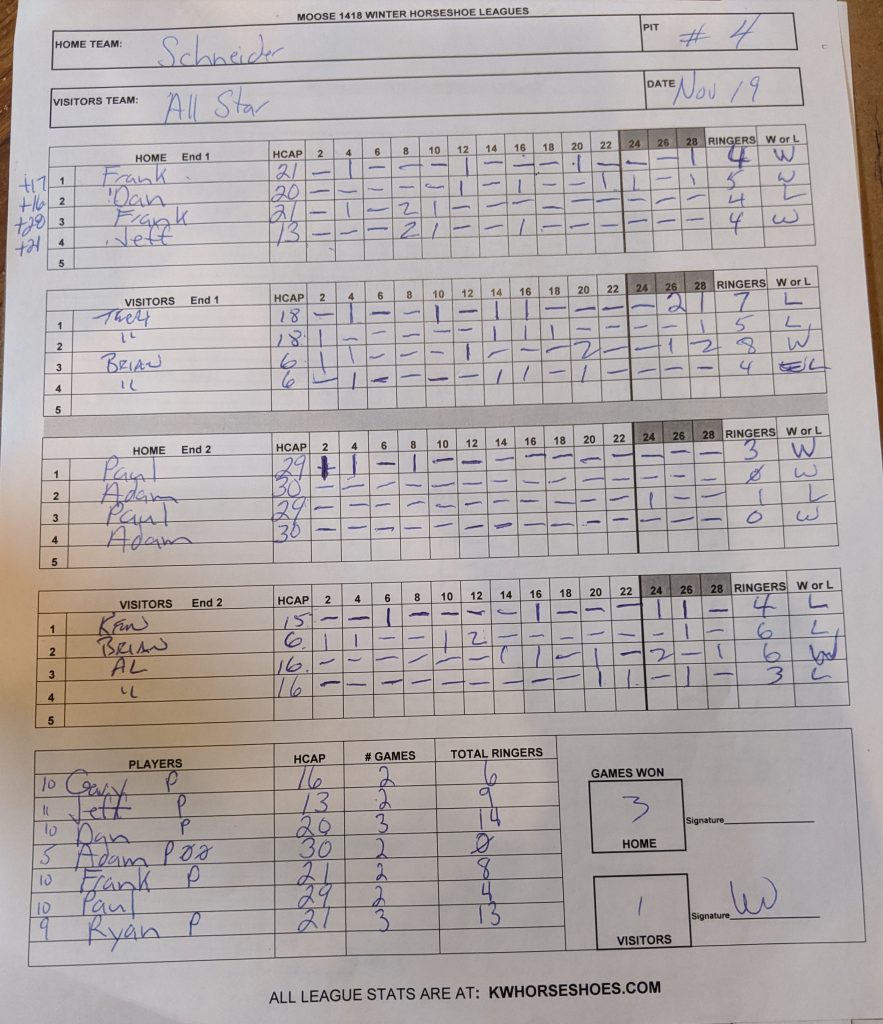 MOOSE 1418 WINTER HORSESHOE LEAGUES
HOME TEAM: Schneider PIT # 4
VISITORS TEAM: All Star DATE Nov 19
HOME End 1 HCAP 2 4 6 8 10 12 14 16 18 20 22 24 26 28 RINGERS W or L
+17 1 Frank 21 - 1 - - - 1 - - - 1 - - - 1 4 W
+16 2 Dan 20 - - - - - 1 - 1 - - 1 1 - 1 5 W
+28 3 Frank 21 - 1 - 2 1 - - - - - - - - - 4 L
+21 4 Jeff 13 - - - 2 1 - - 1 - - - - - - 4 W
5
VISITORS End 1 HCAP 2 4 6 8 10 12 14 16 18 20 22 24 26 28 RINGERS W or L
1 18 - 1 - - 1 - 1 1 - - - - 2 1 7 L
2 " 18 1 - - - - - 1 1 1 - - - - 1 5 L
3 BRIAN 6 1 1 - - - 1 - - - 2 - - 1 2 8 W
4 " 6 - 1 - - - - 1 1 - 1 - - - - 4 L
5
HOME End 2 HCAP 2 4 6 8 10 12 14 16 18 20 22 24 26 28 RINGERS W or L
1 Paul 29 1 1 - 1 - - - - - - - - - - 3 W
2 Adam 30 - - - - - - - - - - - - - - 0 W
3 Paul 29 - - - - - - - - - - - 1 - - 1 L
4 Adam 30 - - - - - - - - - - - - - - 0 W
5
VISITORS End 2 HCAP 2 4 6 8 10 12 14 16 18 20 22 24 26 28 RINGERS W or L
1 KEN 15 - - 1 - - - - 1 - - - 1 1 - 4 L
2 BRIAN 6 1 1 - - 1 2 - - - - - - 1 - 6 L
3 AL 16 - - - - - - 1 1 - 1 - 2 - 1 6 W
4 " 16 - - - - - - - - - 1 1 - 1 - 3 L
5
PLAYERS HCAP # GAMES TOTAL RINGERS
10 Gary P 16 2 6
11 Jeff P 13 2 9
10 Dan P 20 3 14
5 Adam P 30 2 0
10 Frank P 21 2 8
10 Paul 29 2 4
9 Ryan P 21 3 13
GAMES WON
3
HOME
Signature
1
VISITORS
Signature
ALL LEAGUE STATS ARE AT: KWHORSESHOES.COM